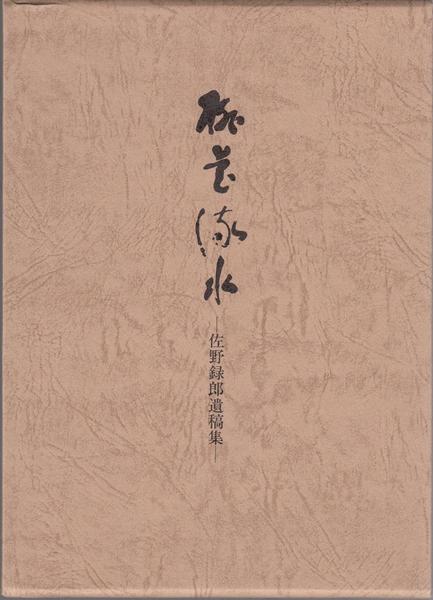 桃花流水
―佐野録郎遺稿集―